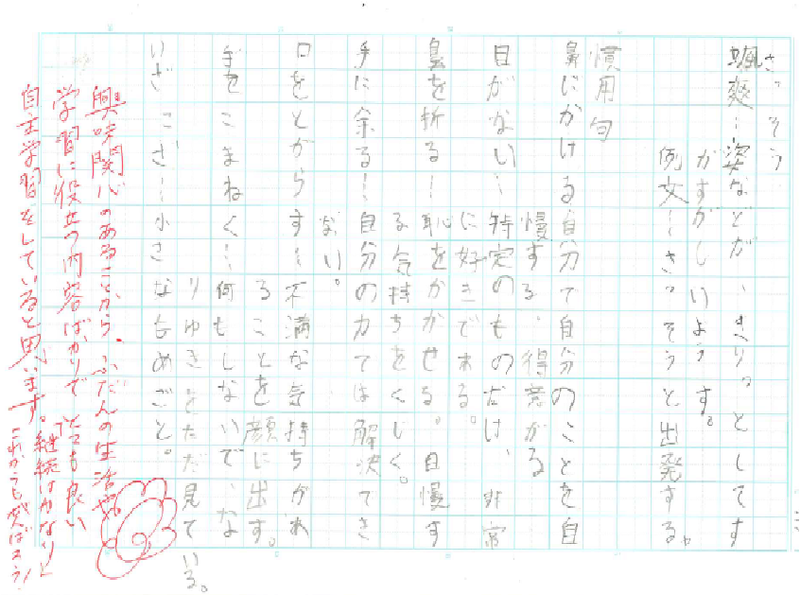 さっそう
颯爽―姿などが、きりっとしてす
がすがしいようす。
例文―さっそうと出発する。
慣用句
鼻にかける―自分で自分のことを自
慢する。得意がる
目がない―特定のものだけ、非常
に好きである。
鼻を折る―恥をかかせる。自慢す
る気持ちをくじく。
手に余る―自分の力では解決でき
ない。
口をとがらす―不満な気持ちがあ
ることを顔に出す。
手をこまねく―何もしないで、な
りゆきをただ見ている。
いざこざ―小さなもめごと。
興味関心のあることから、ふだんの生活や
学習に役立つ内容ばかりで とても良い
自主学習をしていると思います。継続はかなりと
これからも がんばろう!